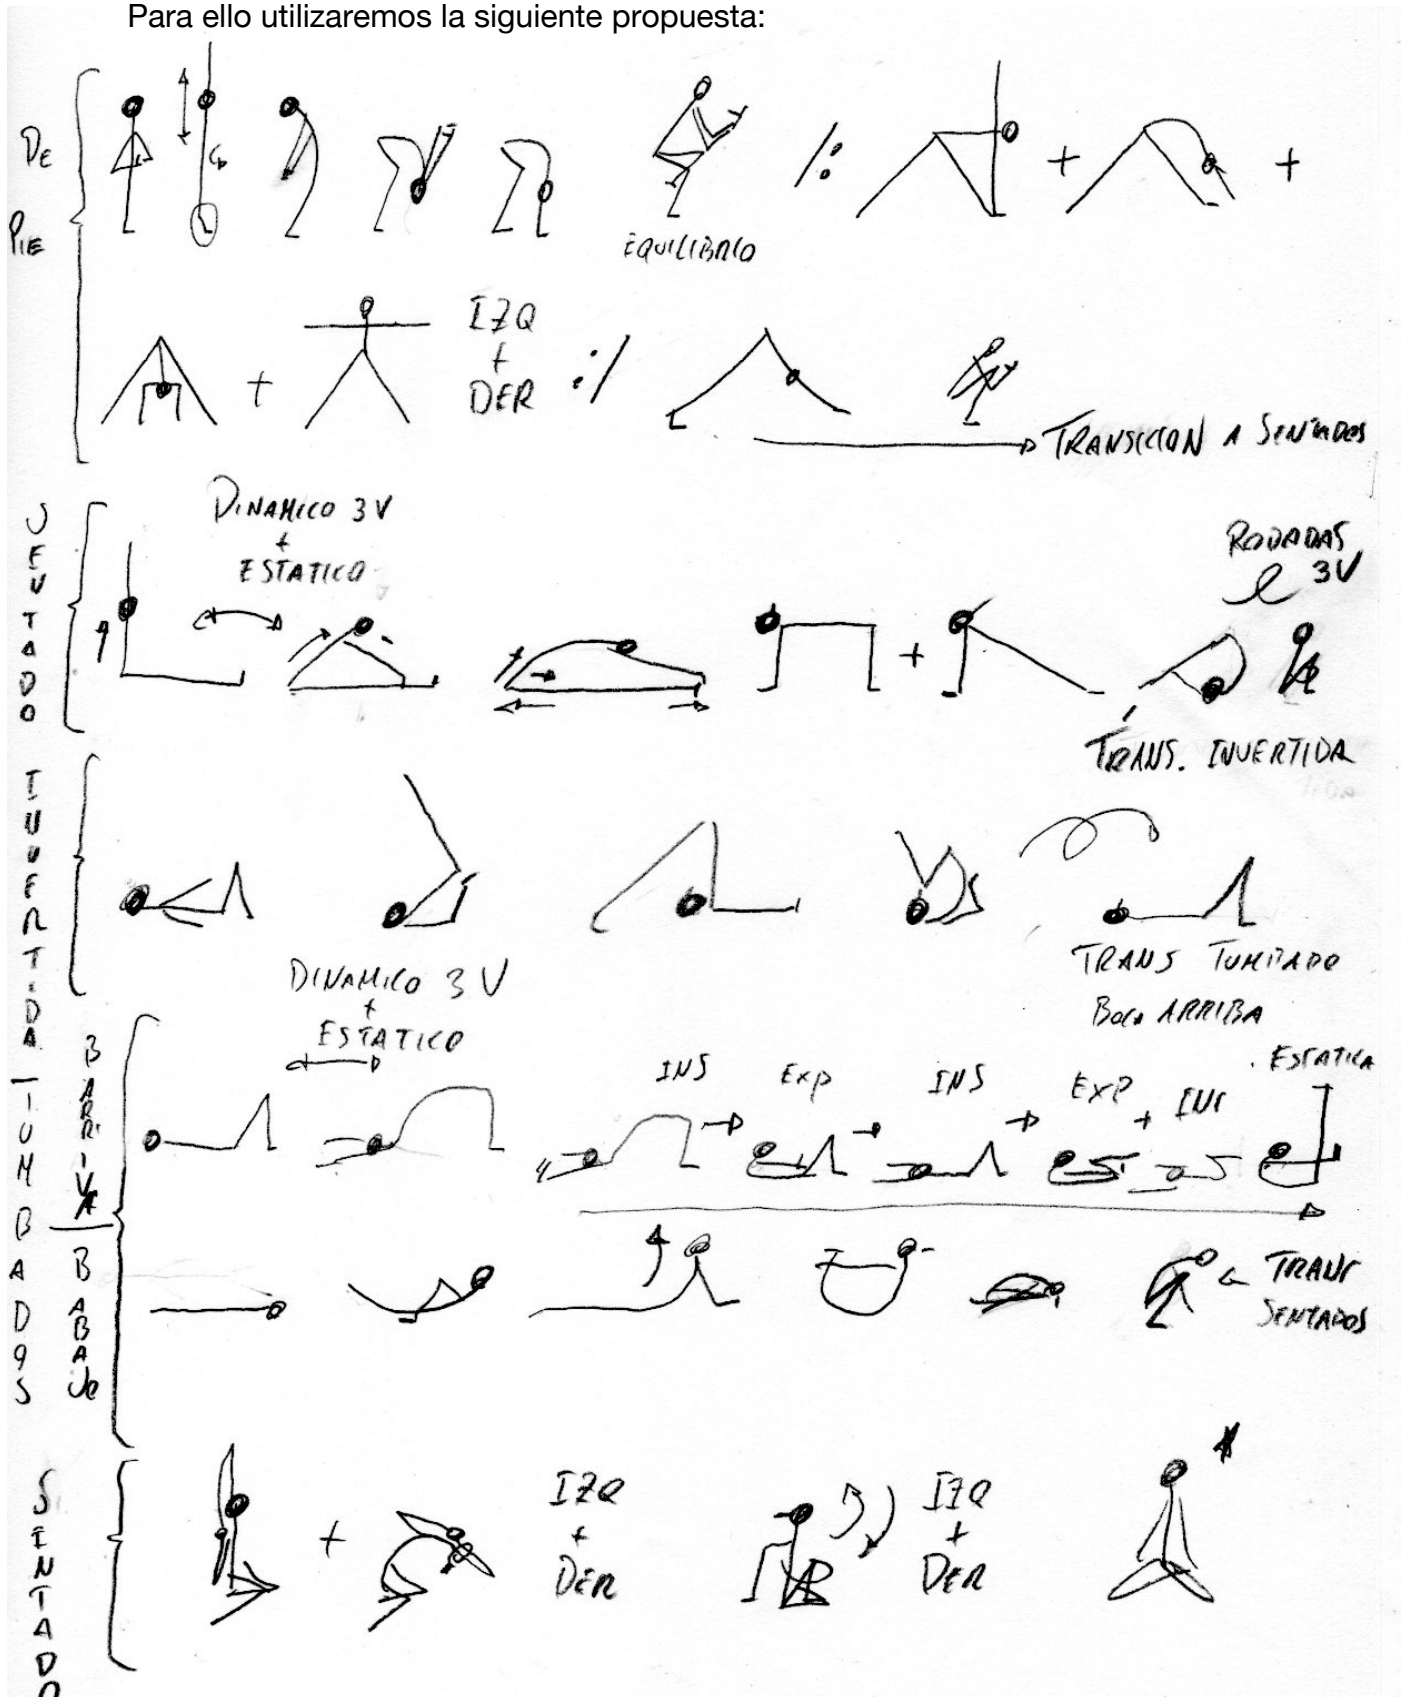 Para ello utilizaremos la siguiente propuesta:
DE
PIE
EQUILIBRIO
IZQ
+
DER
TRANSICION A SENTADOS
SENTADO
DINAMICO 3V
+
ESTATICO
RODADAS
3V
TRANS. INVERTIDA
INVERTIDA
TRANS TUMBADO
BOCA ARRIBA
TUMBADOS
B ARRIVA
DINAMICO 3V
+
ESTATICO
INS
EXP
INS
EXP
+
INS
ESTATICA
B ABAJO
TRANS
SENTADOS
SENTADO
IZQ
+
DER
IZQ
+
DER